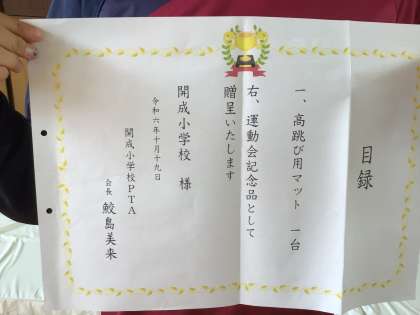 目録
一、高跳び用マット 一台
右、運動会記念品として
贈呈いたします
開成小学校 様
令和六年十月十九日
開成小学校PTA
会長 鮫島美来